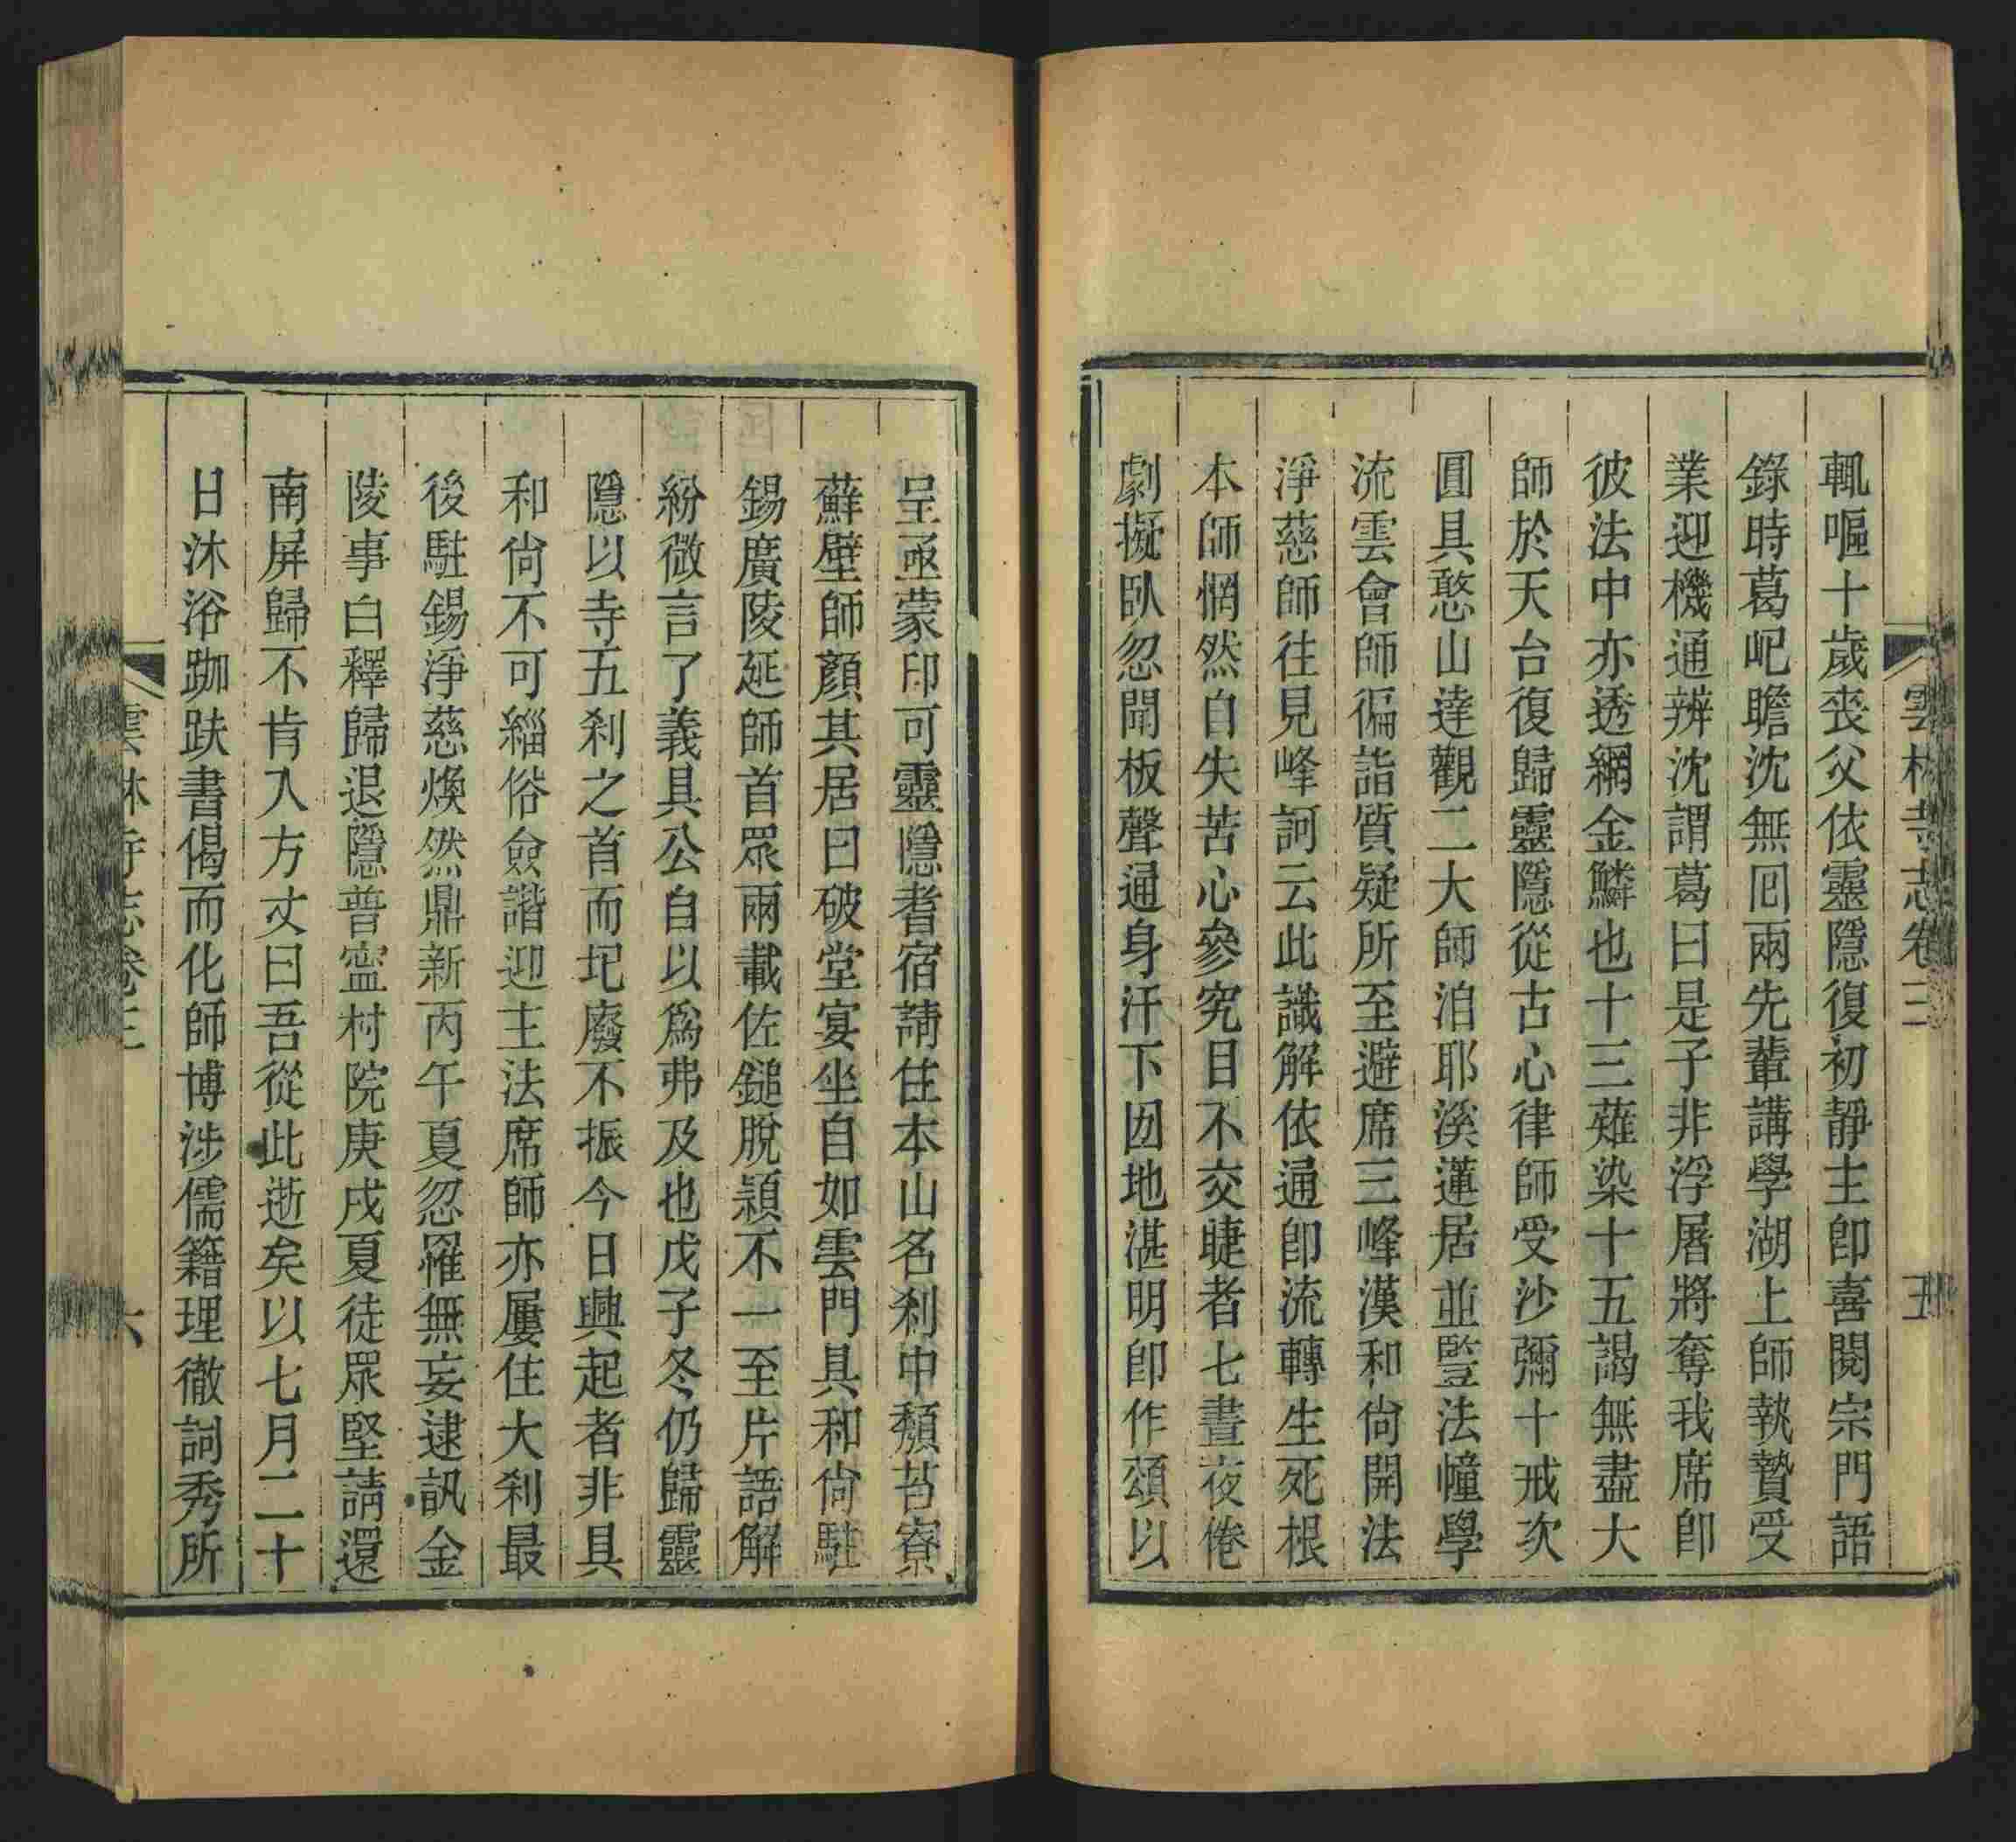 雲林寺志卷三
五
輒嘔十歲喪父依靈隱復初靜主卽喜閱宗門語
錄時葛屺瞻沈無回兩先輩講學湖上師執贄受
業迎機通辨沈謂葛曰是子非浮屠將奪我席卽
彼法中亦透網金鱗也十三薙染十五謁無盡大
師於天台復歸靈隱從古心律師受沙彌十戒次
圓具憨山達觀二大師洎耶溪蓮居並豎法幢學
流雲會師徧詣質疑所至避席三峰漢和尙開法
淨慈師往見峰訶云此識解依通卽流轉生死根
本師惘然自失苦心參究目不交睫者七晝夜倦
劇擬臥忽聞板聲通身汗下囫地湛明卽作頌以
呈亟蒙印可靈隱耆宿請住本山名刹中頹苔寮
蘚壁師顏其居曰破堂宴坐自如雲門具和尙駐
錫廣陵延師首眾兩載佐鎚脫穎不一至片語解
紛微言了義具公自以爲弗及也戊子冬仍歸靈
隱以寺五刹之首而圮廢不振今日興起者非具
和尙不可緇俗僉諧迎主法席師亦屢住大刹最
後駐錫淨慈煥然鼎新丙午夏忽罹無妄逮訊金
陵事白釋歸退隱普寍村院庚戌夏徒眾堅請還
南屏歸不肯入方丈曰吾從此逝矣以七月二十
日沐浴跏趺書偈而化師博涉儒籍理徹詞秀所
雲林寺志卷三
六